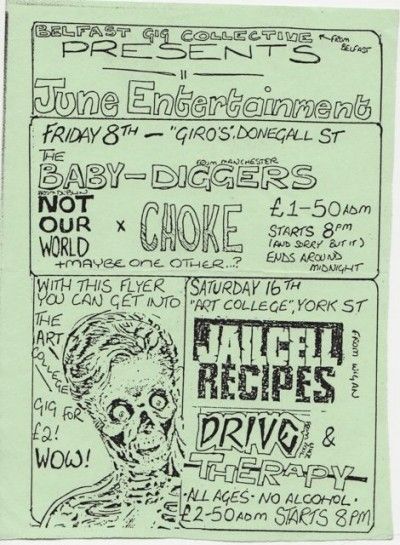 BELFAST GIG COLLECTIVE ← FROM BELFAST
PRESENTS
"
June Entertainment
FRIDAY 8TH — "GIRO'S", DONEGALL ST
THE
FROM MANCHESTER
BABY-DIGGERS
FROM DUBLIN
NOT OUR WORLD x CHOKE
+ MAYBE ONE OTHER...?
£1-50 ADM
STARTS 8PM
(AND SORRY BUT IT)
ENDS AROUND
MIDNIGHT
WITH THIS FLYER
YOU CAN GET INTO
THE
ART
COLLEGE
GIG FOR
£2!
WOW!
SATURDAY 16TH
"ART COLLEGE", YORK ST
JAILCELL
RECIPES
FROM WIGAN
DRIVE &
THERAPY
·ALL AGES· NO ALCOHOL·
£2-50 ADM STARTS 8PM